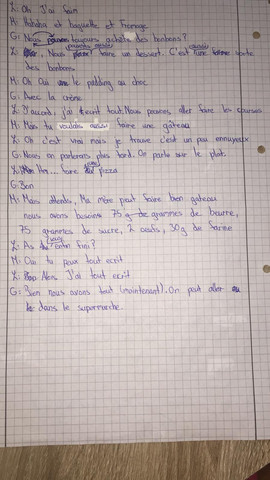 L: Oh J'ai faim
M: Hahaha et baguette et Fromage
G: Nous pouvons toujours acheter des bonbons?
L: Nous pouvons aussi faire un dessert. C'est aussi une sorte
des bonbons
M: Oh Oui le pudding au choc
G: Avec la crème
L: D'accord, j'ai écrit tout. Nous pouvons aller faire les courses
M: Mais tu voulais aussi faire une gâteau
L: Oh c'est vrai mais je trouve c'est un peu ennuyeux
G: Nous en parlerons plus tard. On parle sur le plat.
L: Hm... faire une pizza
G: Bon
M: Mais attends, Ma mère peut faire bien gateau
nous avons besoins 75 g de grammes de beurre,
75 grammes de sucre, 2 oeufs, 30g de farine
L: As tu enfin fini?
M: Oui tu peux tout ecrit
L: Non J'ai tout ecrit
G: Bien nous avons tout (maintenant). On peut aller
dans le supermarché.